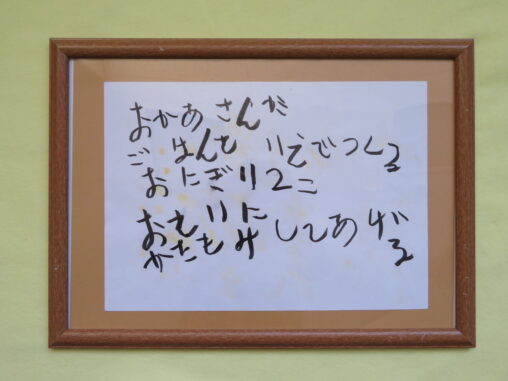 おかあさんが
ごはんを りえでつくる
おにぎり2こ
おえりに
かたもみしてあげる